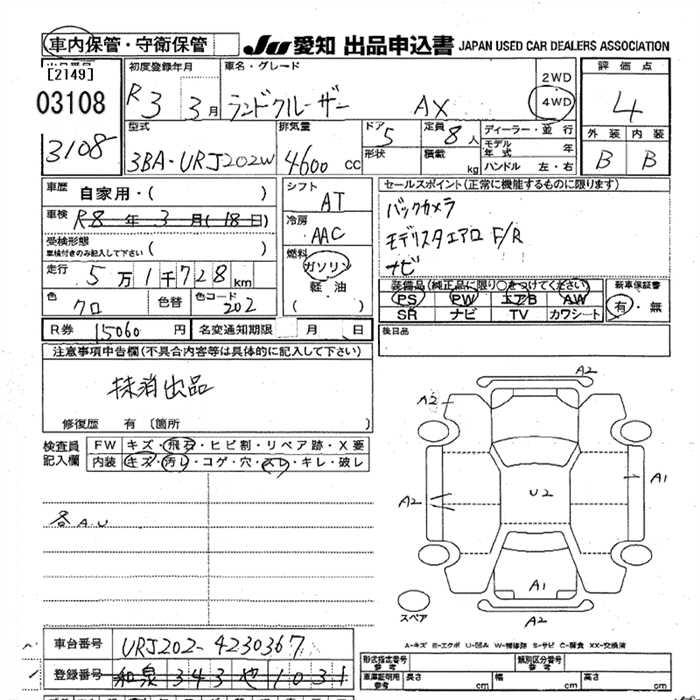 車内保管・守衛保管 JU 愛知 出品申込書 JAPAN USED CAR DEALERS ASSOCIATION
出品番号
[2149]
03108
3108
初度登録年月
R3 3月
車名・グレード
ランドクルーザー AX
2WD
4WD
評価点
4
外装 内装
B B
型式
3BA-URJ202W
排気量
4600 cc
ドア 5
形状
定員 8人
積載 kg
ディーラー・並行
モデル年式 年
ハンドル 左・右
車歴 自家用・( )
車検 R8年3月(18日)
受検形態
車検付きのみ記入して下さい ( )
走行 5万1千728km
色 クロ 色替 色コード 202
シフト
AT
冷房
AAC
燃料
ガソリン
軽油
( )
セールスポイント(正常に機能するものに限ります)
バックカメラ
モデリスタエアロ F/R
ナビ
装備品(純正品に限り○をつけてください)
PS PW エアB AW
SR ナビ TV カワシート
新車保証書
有・無
R券 15060円 名変通知期限 月 日
後日品
注意事項申告欄(不具合内容等は具体的に記入して下さい)
抹消出品
修復歴 有 (箇所 )
検査員記入欄
FW キズ・飛石・ヒビ割・リペア跡・X要
内装 キズ・汚レ・コゲ・穴・スレ・キレ・破レ
各A.U
A2
A2
A2
A1
U2
A1
A2
スペア
A-キズ E-エクボ U-凹み W-補修跡 S-サビ C-腐食 XX-交換済
車台番号 URJ202-4230367
登録番号 和泉 343 や 1031
形式指定番号 参考
類別区分番号 参考
車庫証明用 参考 長さ cm 幅 cm 高さ cm